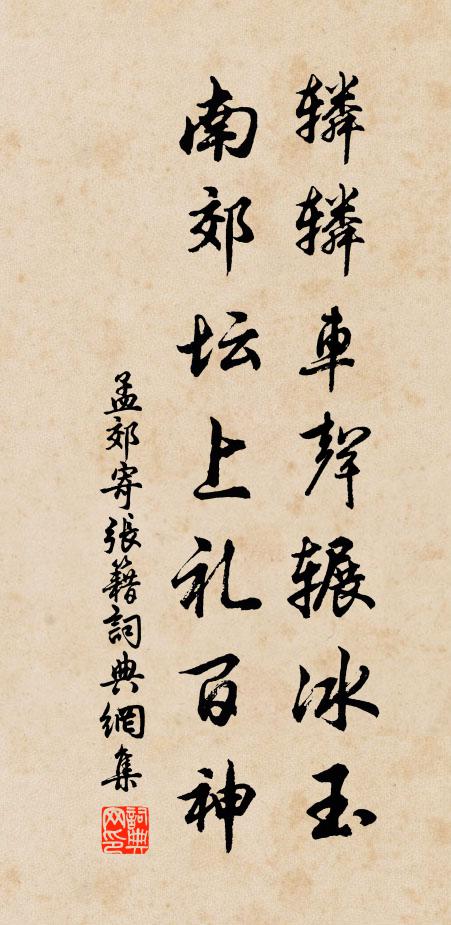 辚辚車聲辗冰玉
南郊坛上礼百神
孟郊寄張籍詞典網集
詞典网印